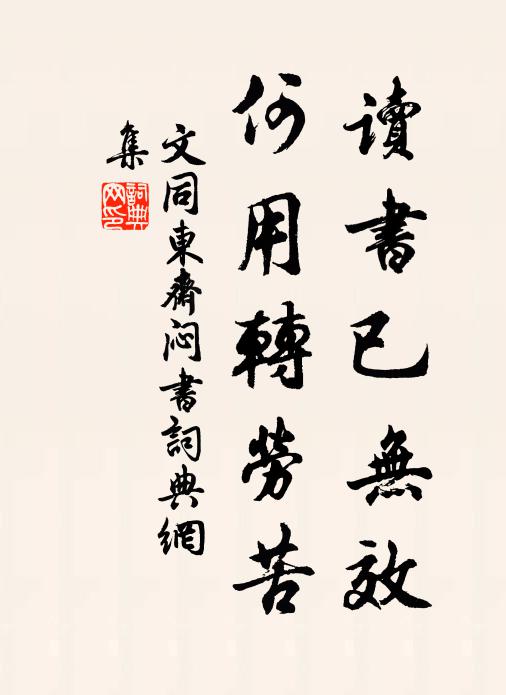 讀書已無效
何用轉勞苦
文同東齋悶書詞典網
集
詞典
网印